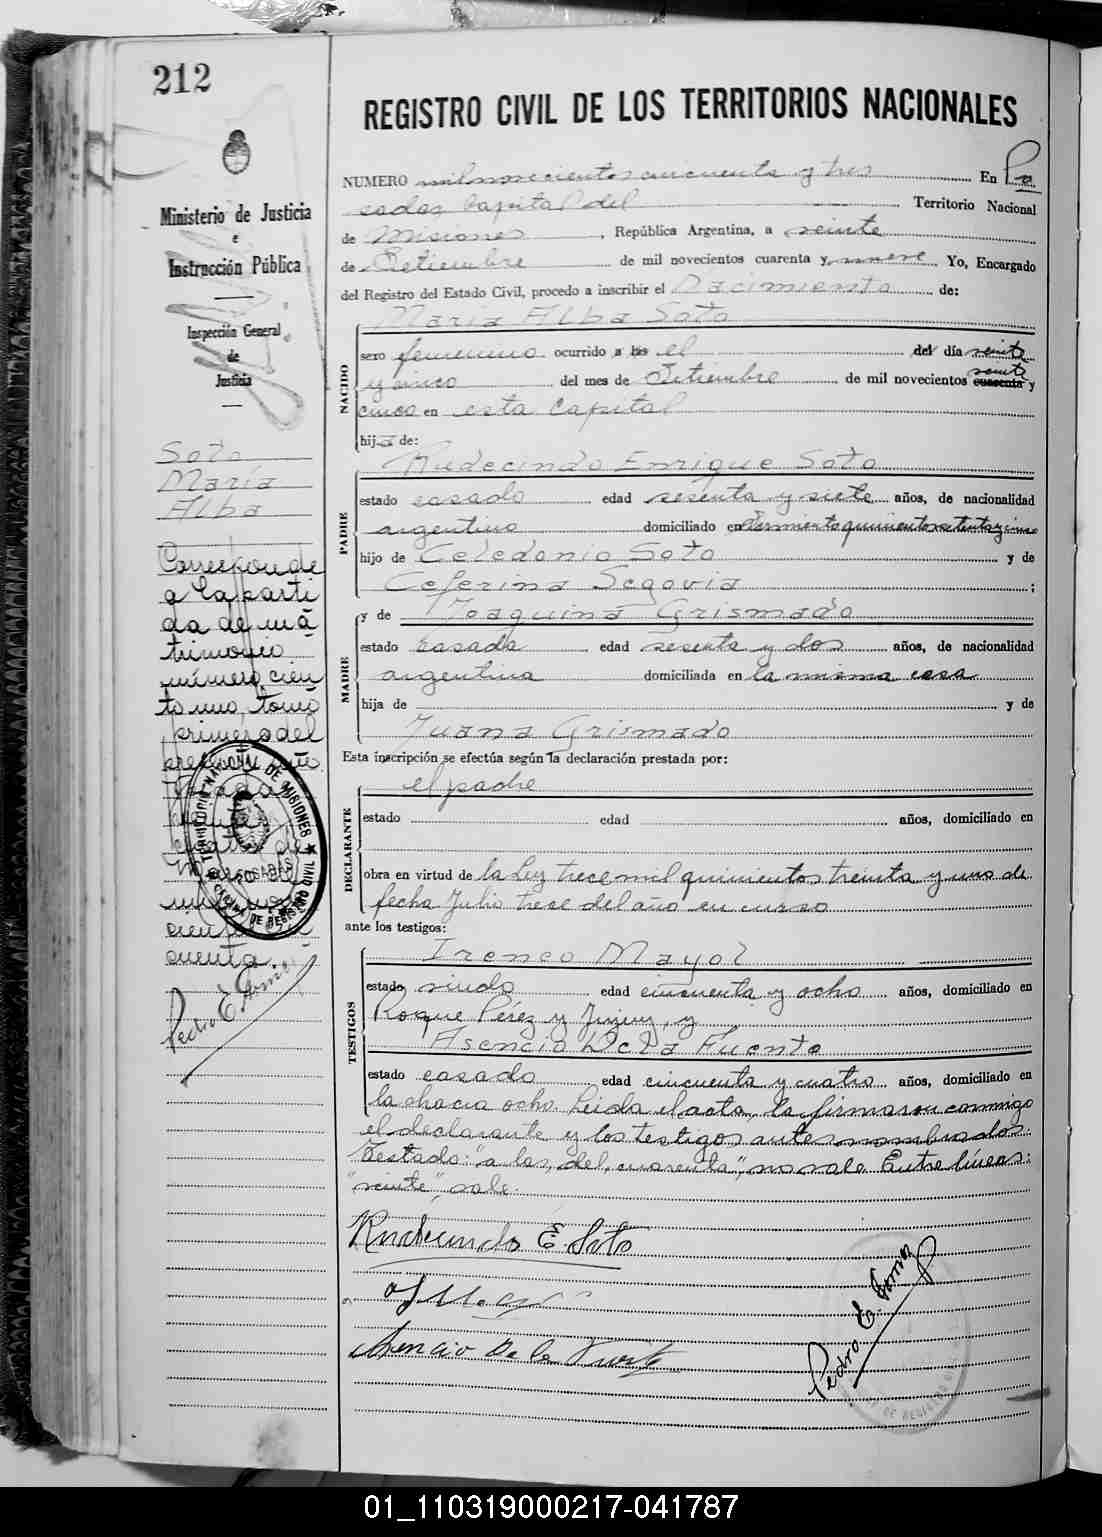 212
Ministerio de Justicia
e
Instrucción Pública
Inspección General
de
Justicia
Soto
María
Alba
Corresponde
a la parti
da de ma
trimonio
número cien
to uno, tomo
primero del
presente año.
Posadas,
cuatro de
Marzo de
mil nove
cientos cin
cuenta.
Pedro E. Gomez
TERRITORIO NACIONAL DE MISIONES
POSADAS
OFICINA DE REGISTRO CIVIL
REGISTRO CIVIL DE LOS TERRITORIOS NACIONALES
NUMERO mil novecientos cincuenta y tres En Po
sadas Capital del Territorio Nacional
de Misiones, República Argentina, a veinte
de Setiembre de mil novecientos cuarenta y nueve Yo, Encargado
del Registro del Estado Civil, procedo a inscribir el Nacimiento de:
María Alba Soto
NACIDO
sexo femenino ocurrido a las el del día veinte
y cinco del mes de Setiembre de mil novecientos cuarenta veinte y
cinco en esta Capital
hija de:
Rudecindo Enrique Soto
PADRE
estado casado edad sesenta y siete años, de nacionalidad
argentino domiciliado en Sarmiento quinientos setenta y cinco
hijo de Celedonio Soto y de
Ceferina Segovia ;
y de Joaquina Grismado
MADRE
estado casada edad sesenta y dos años, de nacionalidad
argentina domiciliada en la misma casa
hija de y de
Juana Grismado
Esta inscripción se efectúa según la declaración prestada por:
el padre
DECLARANTE
estado edad años, domiciliado en
obra en virtud de la Ley trece mil quinientos treinta y uno de
fecha Julio trece del año en curso
ante los testigos:
Ireneo Mayol
TESTIGOS
estado viudo edad cincuenta y ocho años, domiciliado en
Roque Pérez y Jujuy, y
Asencio De la Fuente
estado casado edad cincuenta y cuatro años, domiciliado en
la chacra ocho. Leída el acta, la firmaron conmigo
el declarante y los testigos antes nombrados.
Testado: "a las, del, cuarenta", no vale. Entre líneas:
"veinte", vale.
Rudecindo E. Soto
Asencio De la Fuente
Pedro E. Gomez
01_110319000217-041787